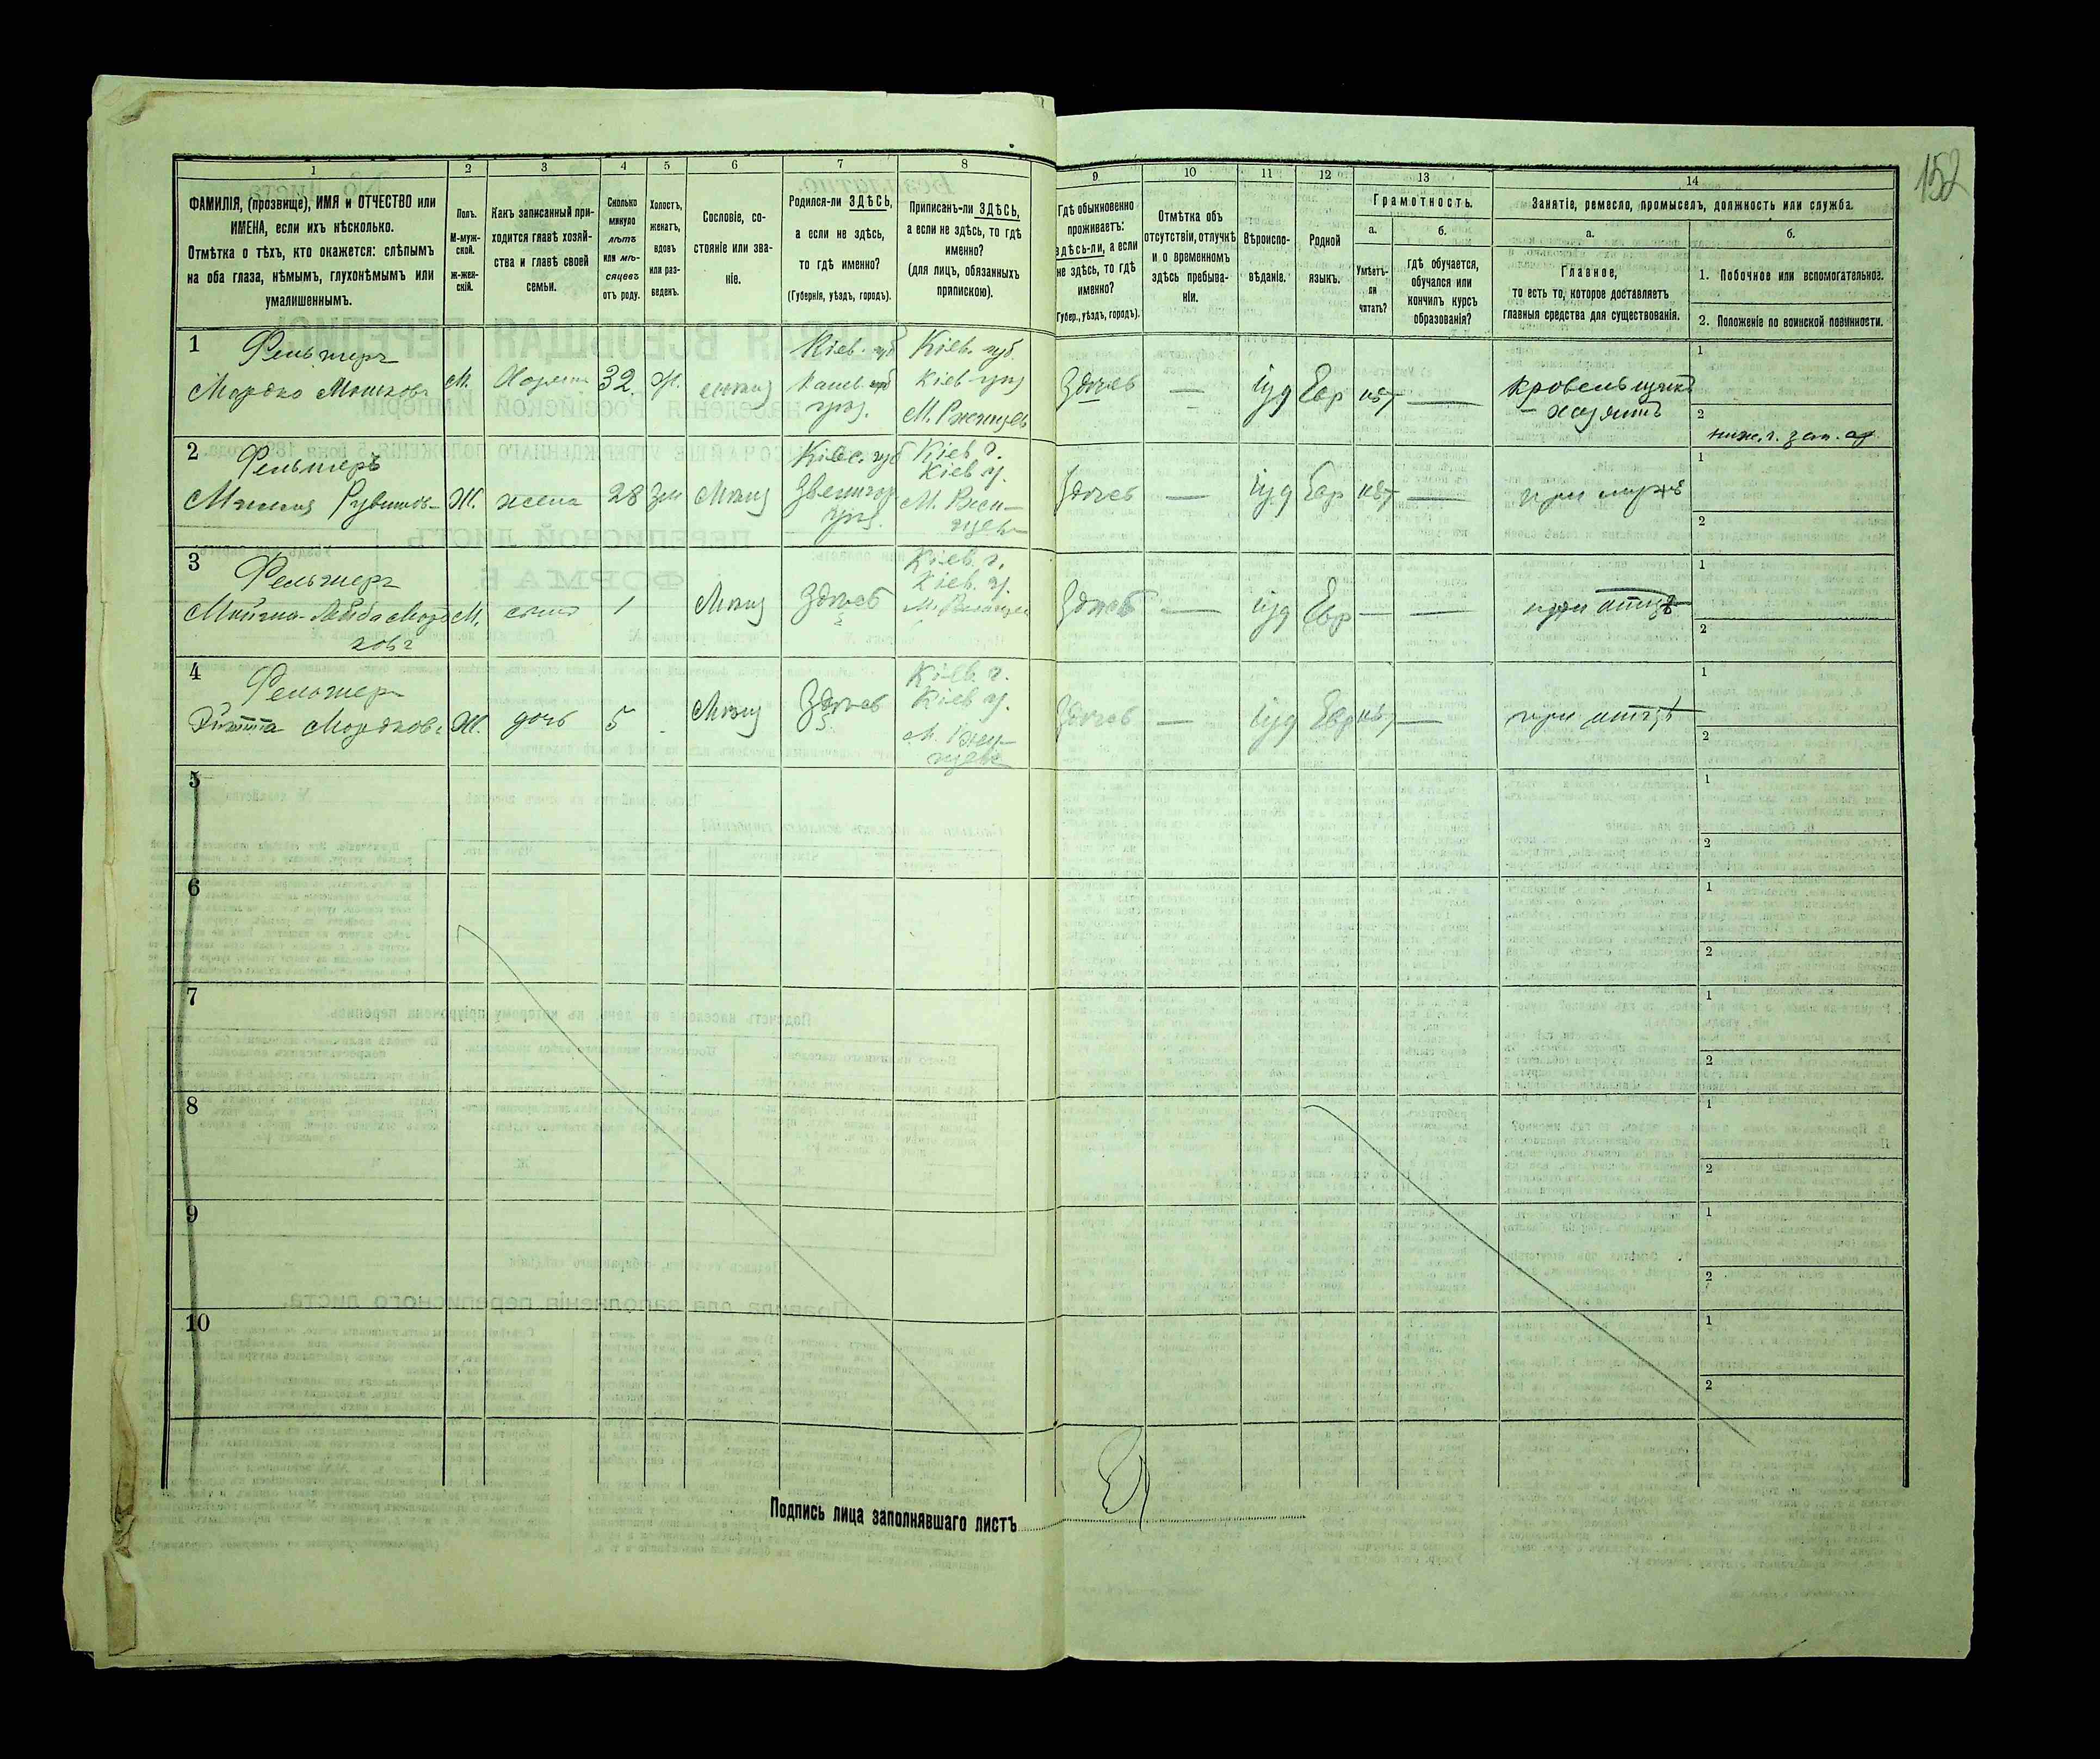 152
1 2 3 4 5 6 7 8 9 10 11 12 13 14
ФАМИЛІЯ, (прозвище), ИМЯ и ОТЧЕСТВО или
ИМЕНА, если ихъ нѣсколько.
Отмѣтка о тѣхъ, кто окажется: слѣпымъ
на оба глаза, нѣмымъ, глухонѣмымъ или
умалишеннымъ.
Полъ.
М-муж-
ской.
ж-жен-
скій.
Какъ записанный при-
ходится главѣ хозяй-
ства и главѣ своей
семьи.
Сколько
минуло
лѣтъ
или мѣ-
сяцевъ
отъ роду.
Холостъ,
женатъ,
вдовъ
или раз-
веденъ.
Сословіе, со-
стояніе или зва-
ніе.
Родился-ли ЗДѢСЬ,
а если не здѣсь,
то гдѣ именно?
(Губернія, уѣздъ, городъ).
Приписанъ-ли ЗДѢСЬ,
а если не здѣсь, то гдѣ
именно?
(для лицъ, обязанныхъ
припискою).
Гдѣ обыкновенно
проживаетъ:
здѣсь-ли, а если
не здѣсь, то гдѣ
именно?
(Губер., уѣздъ, городъ).
Отмѣтка объ
отсутствіи, отлучкѣ
и о временномъ
здѣсь пребыва-
ніи.
Вѣроиспо-
вѣданіе.
Родной
языкъ.
Грамотность.
а.
Умѣетъ-
ли
читать?
б.
гдѣ обучается,
обучался или
кончилъ курсъ
образованія?
Занятіе, ремесло, промыселъ, должность или служба.
а.
Главное,
то есть то, которое доставляетъ
главныя средства для существованія.
б.
1. Побочное или вспомогательное.
2. Положеніе по воинской повинности.
1 Фельжеръ
Мордко Мошковъ
М.
Хозяин
32
Ж.
Кіев. губ
Канев.
Кіев. губ.
Кіев
М. Ржищев
Здѣсь
—
іуд
Евр
нѣт
—
Кровельщикъ
- хозяинъ
1
2
2 Фельжеръ
Ж.
жена
28
Зм
Мѣщ
Кіев. губ
Звенигор
Кіев г.
Кіев у.
М. Ржи-
щев
Здѣсь
—
іуд
Евр
нѣт
—
при мужѣ
1
2
3 Фельжеръ
М.
сынъ
1
Мѣщ
Здѣсь
Кіев. г.
Кіев у.
М. Ржищев
Здѣсь
—
іуд
Евр
—
—
при отцѣ
1
2
4 Фельжер
Мордков
Ж.
дочь
5
Мѣщ
Здѣсь
Кіев. г.
Кіев у.
М. Ржи-
щев
Здѣсь
—
іуд
Евр
нѣт
—
при отцѣ
1
2
5
1
2
6
1
2
7
1
2
8
1
2
9
1
2
10
1
2
Подпись лица заполнявшаго листъ